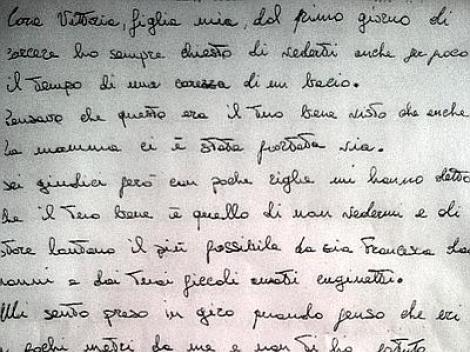 Cara Vittoria, figlia mia, dal primo giorno di
carcere ho sempre chiesto di vederti anche per poco
il tempo di una carezza di un bacio.
Pensavo che questo era il tuo bene visto che anche
la mamma ci è stata portata via.
sei giudici però con poche righe mi hanno detto
che il tuo bene è quello di non vedermi e di
stare lontano il più possibile da zia Francesca dai
nonni e dai tuoi piccoli amati cuginetti.
Mi sento preso in giro quando penso che eri
a pochi metri da me e non ti ho potuto